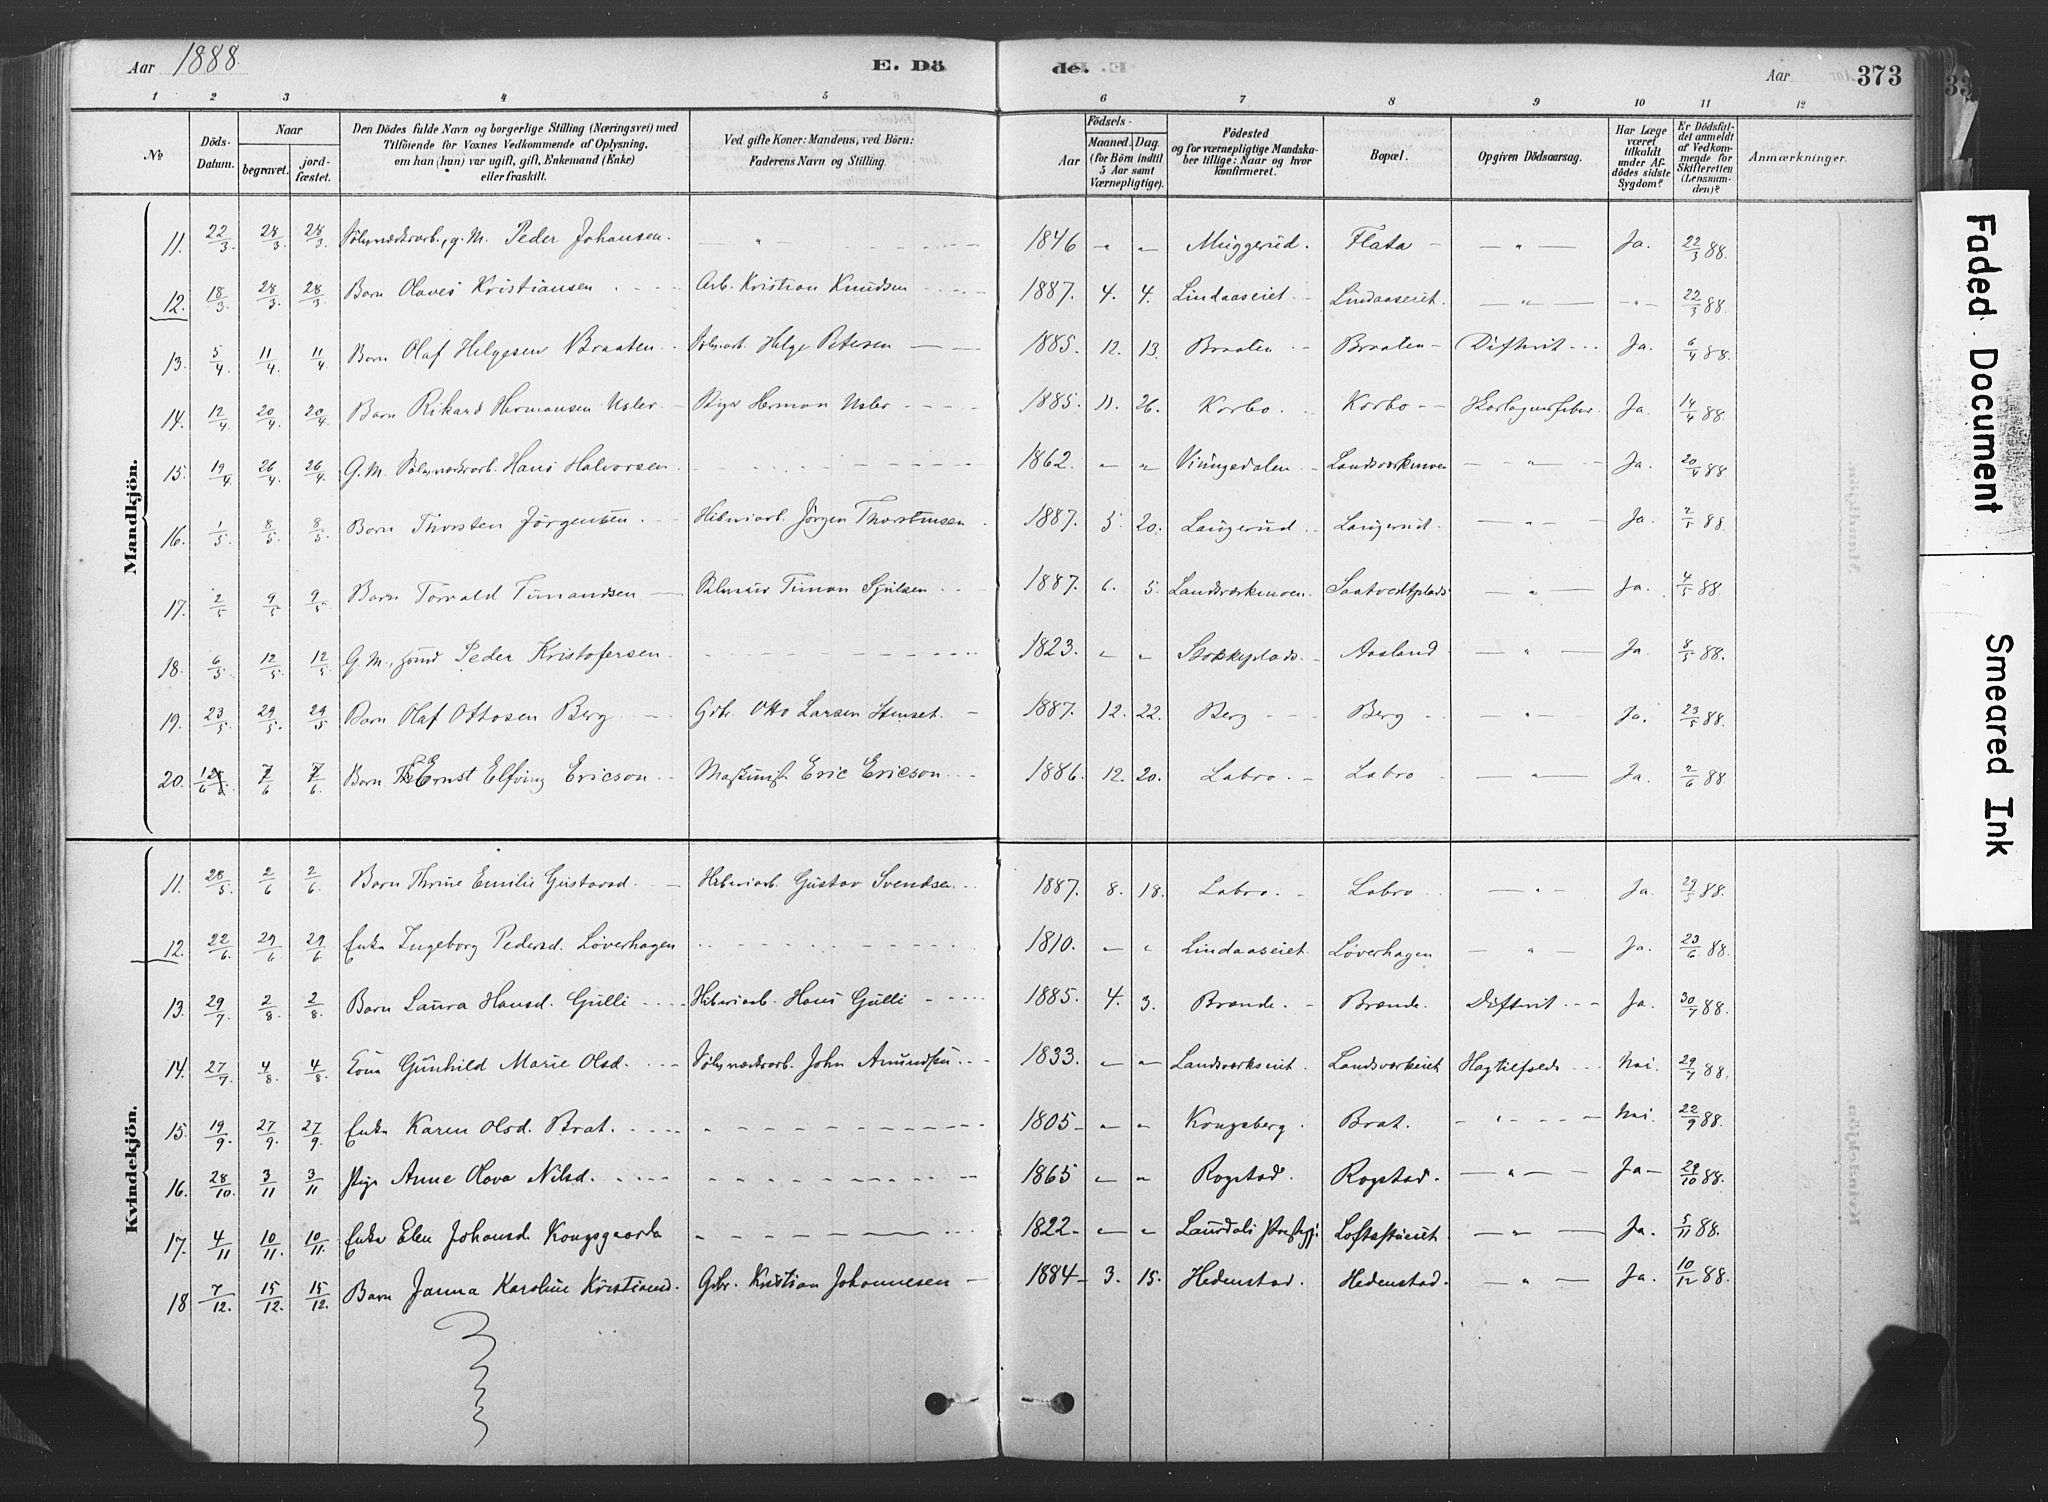 Aar 1888
E. Dö
de.
Aar
373
1 2 3 4 5 6 7 8 9 10 11 12
No
Döds-Datum.
Naar
begravet. jordfæstet.
Den Dödes fulde Navn og borgerlige Stilling (Næringsvei) med
Tilföiende for Voxnes Vedkommende af Oplysning,
om han (hun) var ugift, gift, Enkemand (Enke)
eller fraskilt.
Ved gifte Koner: Mandens, ved Börn:
Faderens Navn og Stilling.
Födsels-
Aar
Maaned. (for Börn indtil 5 Aar samt Værnepligtige).
Dag.
Födested
og for værnepligtige Mandska-
ber tillige: Naar og hvor
konfirmeret.
Bopæl.
Opgiven Dödsaarsag.
Har Læge været tilkaldt under Afdödes sidste Sygdom?
Er Dödsfaldet anmeldt af Vedkommende for Skifteretten (Lensmanden)?
Anmærkninger.
Mandkjön.
11. 22/3. 28/3. 28/3. g. M. Peder Johansen. — " — 1846 " " Muggerud. Flata — " — Ja. 22/3 88.
12. 18/3. 28/3. 28/3. Barn Olaves Kristiansen Arb. Kristian Knudsen 1887. 4. 4. Lindaaseiet. Lindaaseiet. — " — 22/3 88.
13. 5/4. 11/4. 11/4 Barn Olaf Helgesen Braaten. Helge Petersen 1885. 12. 13. Braaten Braaten Difterit Ja. 6/4 88.
14. 12/4. 20/4. 20/4 Barn Rikard Hermansen Usler Stiger Herman Usler 1885. 11. 26. Korbo. Korbo Skarlagensfeber. Ja. 14/4 88.
15. 19/4 26/4. 26/4 G. M. Sølvverksarb. Hans Halvorsen. 1862. " " Vinngsdalen Landsværkmoen — " — Ja. 20/4 88.
16. 1/5. 8/5. 8/5. Barn Thorsten Jørgensen Jørgen Thorstensen 1887. 5. 20. Laugerud. Laugerud. — " — Ja. 2/5 88.
17. 2/5. 9/5. 9/5. Barn Torvald Timandsen Timan 1887. 6. 5. Landsværkmoen. Saatvedtplads — " — Ja. 4/5 88.
18. 6/5 12/5 12/5 G. M., Peder Kristofersen 1823. " " Stokkeplads Aasland " Ja. 8/5 88.
19. 23/5. 29/5. 29/5 Barn Olaf Ottosen Berg Gdbr. Otto Larsen Stenset. 1887. 12. 22. Berg Berg — " — Ja. 23/5 88.
20. 1/6 7/6 7/6. Barn Ernst Elfving Ericson Maskinist Eric Ericson 1886. 12. 20. Labro. Labro — " — Ja. 2/6 88.
Kvindekjön.
11. 28/5. 2/6 2/6. Barn Thrine Emilie Gustavsd. Gustav Svendsen 1887. 8. 18. Labro. Labro — " — Ja. 29/5 88.
12. 22/6. 29/6 29/6 Enke Ingeborg Pedersd. Løverhagen 1810. " " Lindaaseiet. Løverhagen " Ja. 23/6 88.
13. 29/7 2/8. 2/8. Barn Laura Hansd. Gulli Hans Gulli 1885. 4. 3. Brænde. Brænde. Difterit Ja. 30/7 88.
14. 27/7 4/8. 4/8. Kone Gunhild Marie Olsd. Sølvverksarb. John Amundsen 1833. " " Landsværkseiet Landsværkeiet Nei. 29/7 88.
15. 19/9. 27/9. 27/9. Enke Karen Olsd. Brat. 1805 " " Kongsberg. Brat. " Nei. 22/9 88.
16. 28/10. 3/11 3/11 Pige Anne Olava Nilsd. 1865 " " Rogstad. Rogstad. — " — Ja 29/10 88.
17. 4/11 10/11. 10/11. Enke Elen Johansd. Kongsgaarden 1822 " " Laurdals Loftsstueiet — " — Ja. 5/11 88.
18 7/12. 15/12. 15/12. Barn Janna Karoline Kristiansd. Gdbr. Kristian Johannesen 1884 3. 15. Hedenstad. Hedenstad. — " — Ja. 10/12 88.
Faded Document
Smeared Ink